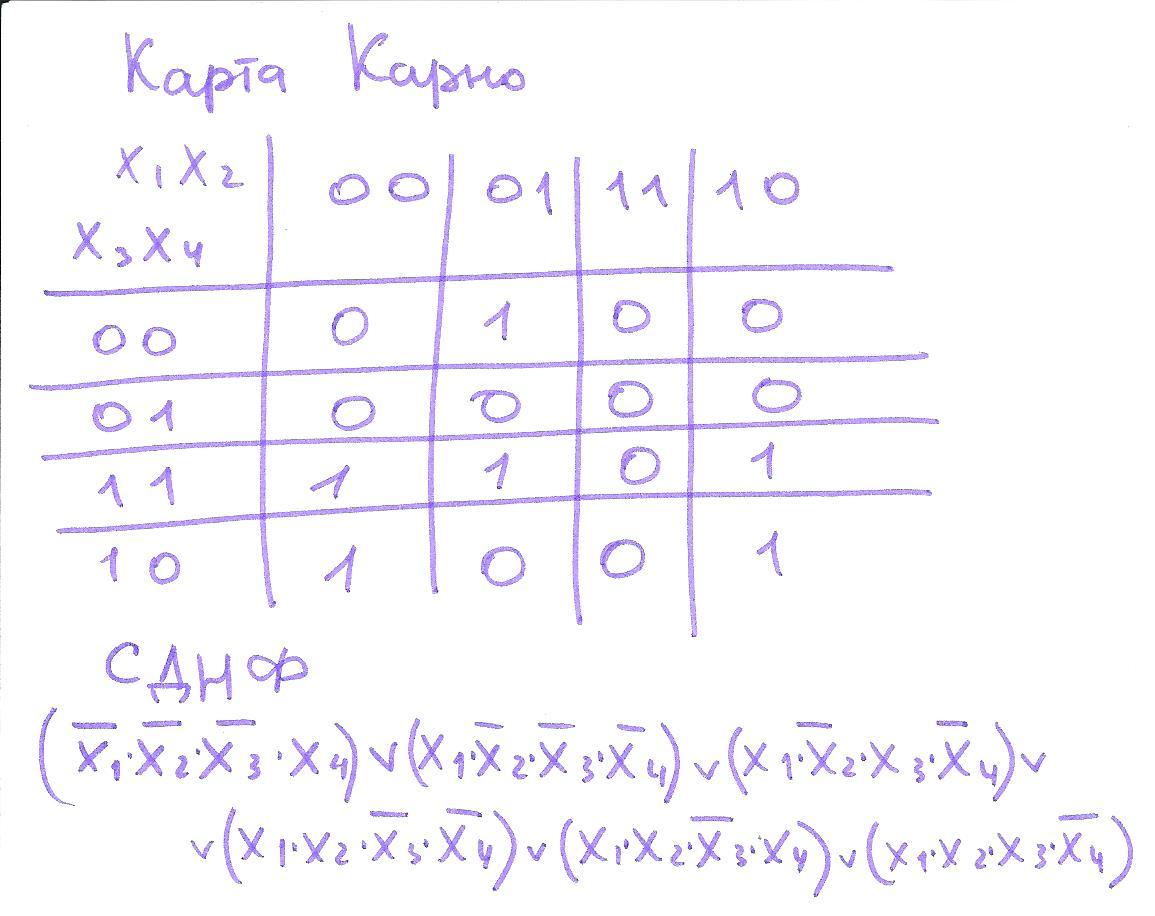 Карта Карно
X₁X₂ 00 01 11 10
X₃X₄
00 0 1 0 0
01 0 0 0 0
11 1 1 0 1
10 1 0 0 1
СДНФ
(X̅₁·X̅₂·X̅₃·X₄)∨(X₁·X̅₂·X̅₃·X̅₄)∨(X₁·X̅₂·X₃·X̅₄)∨
∨(X₁·X₂·X̅₃·X̅₄)∨(X₁·X₂·X̅₃·X₄)∨(X₁·X₂·X₃·X̅₄)